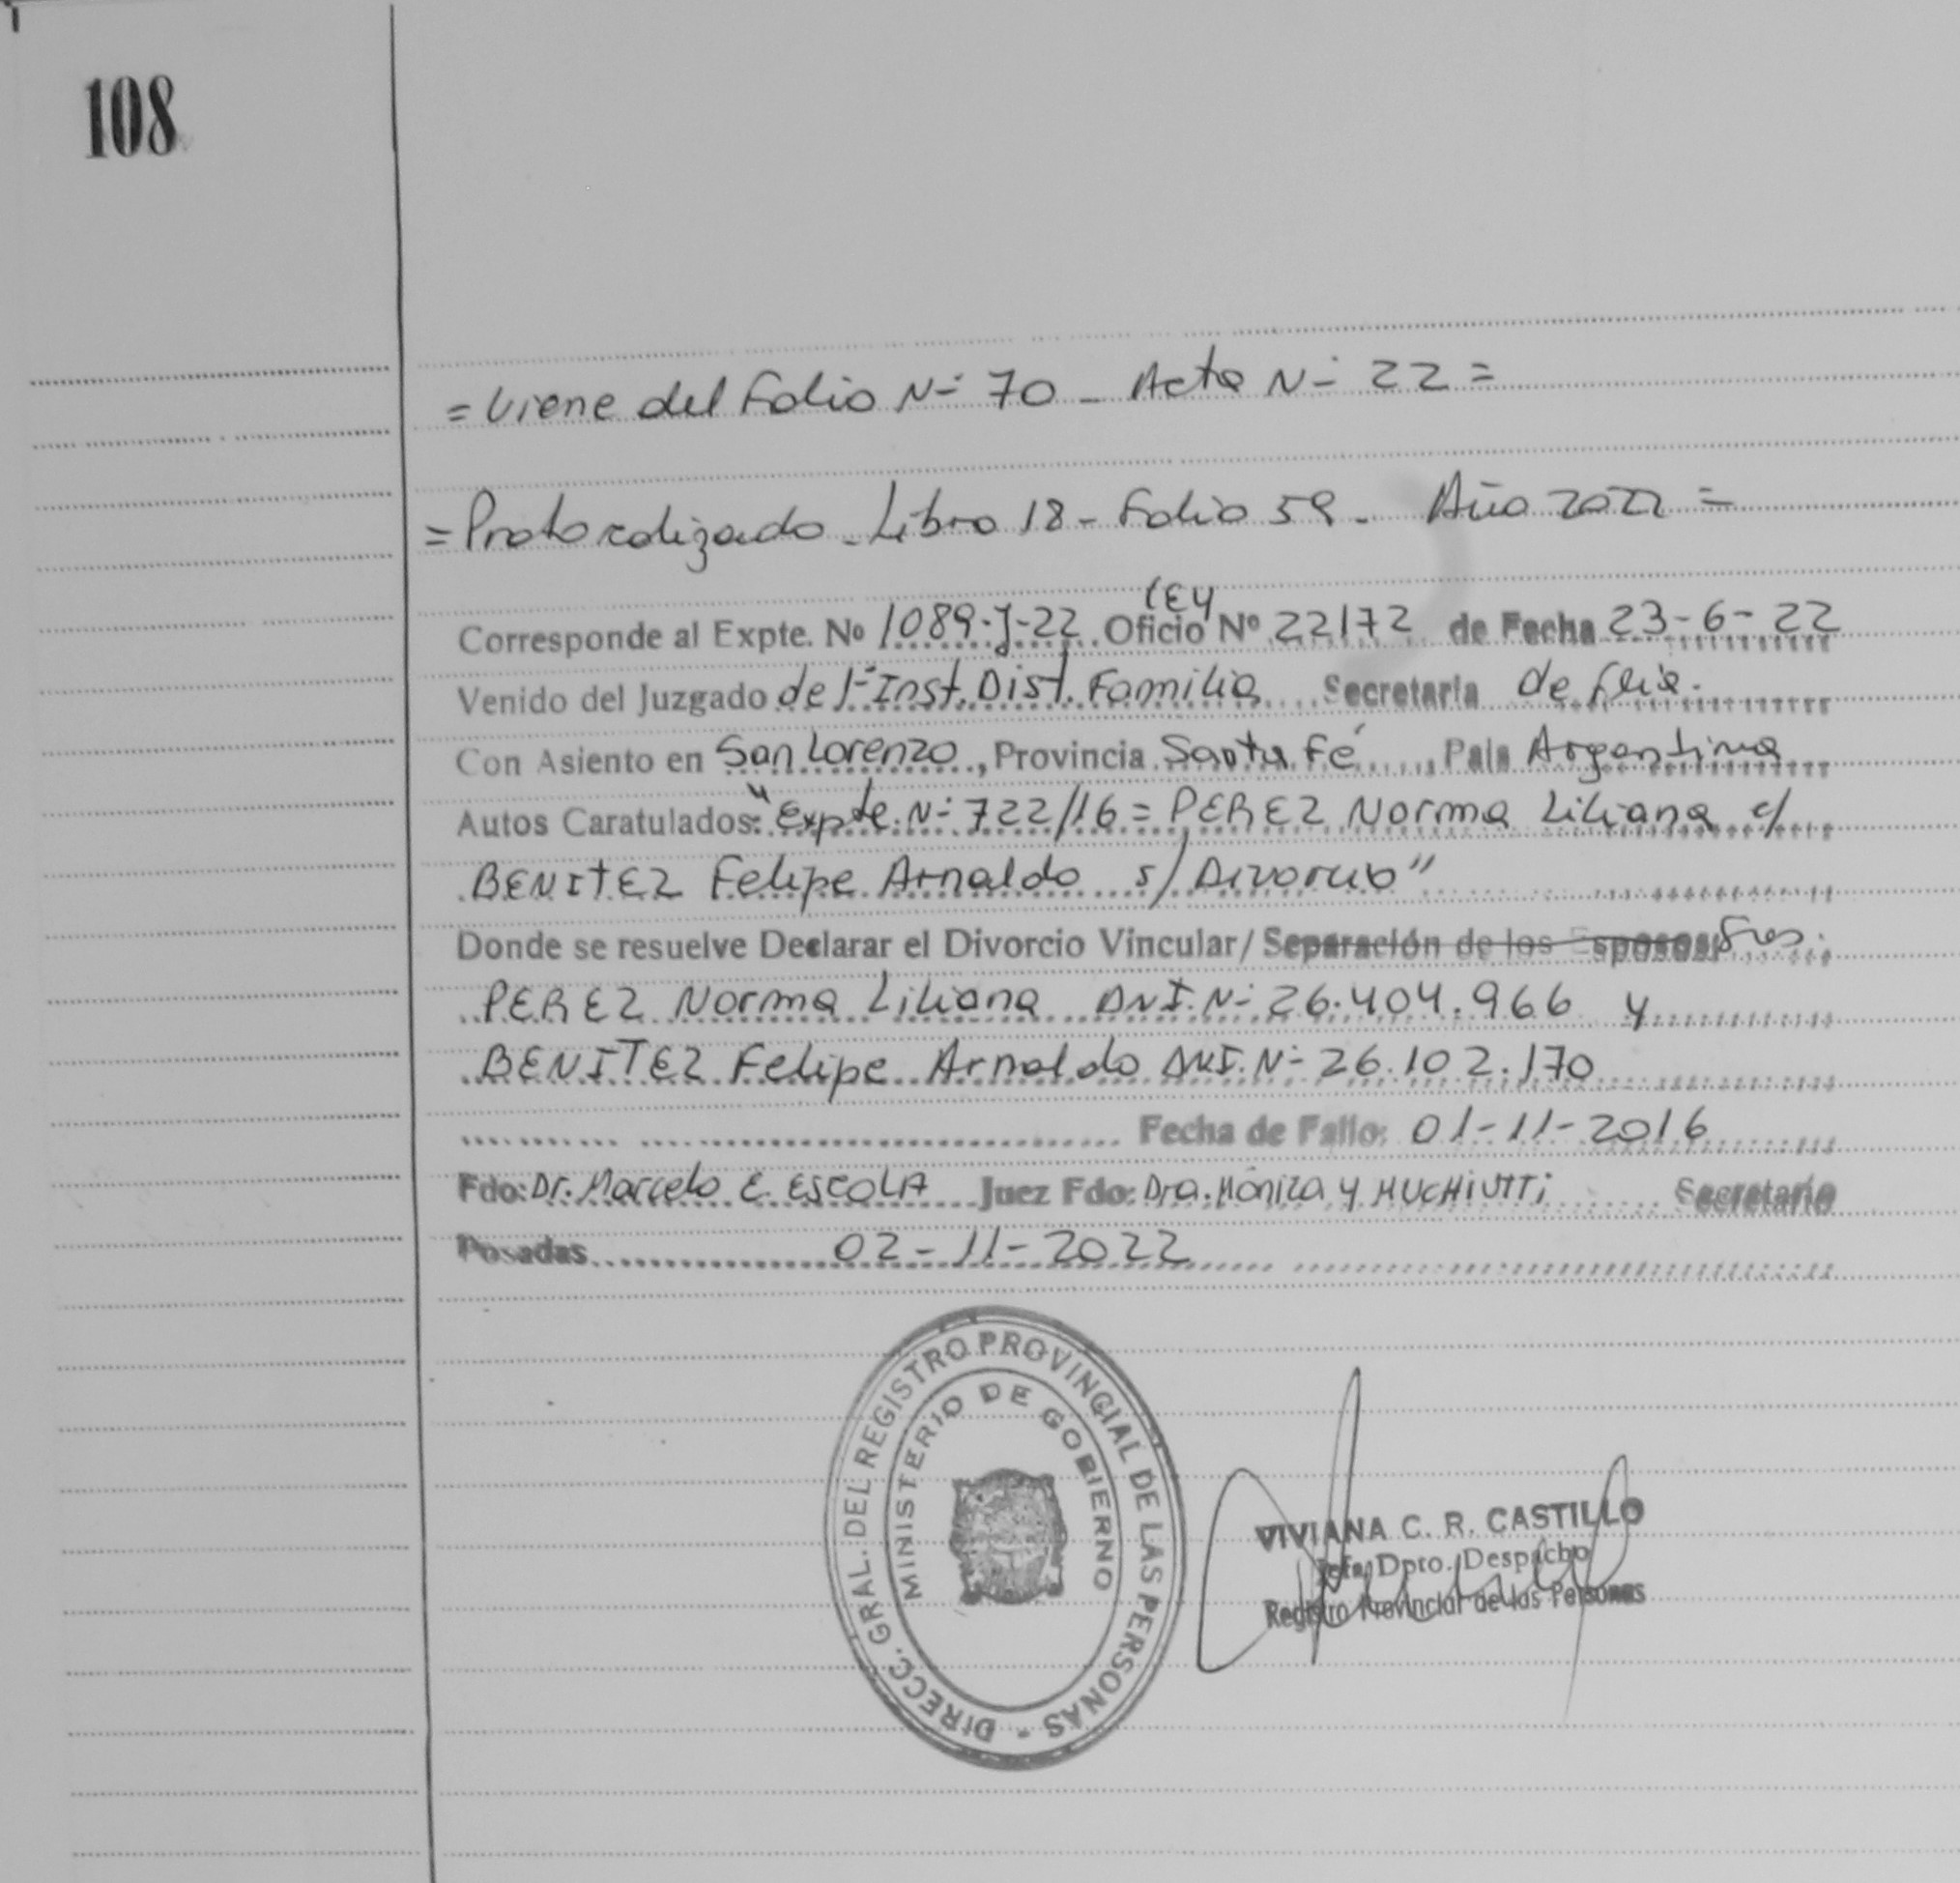 108
= Viene del Folio N- 70 - Acta N- 22 =
= Protocolizado - Libro 18 - Folio 59 - Año 2022 =
LEY
Corresponde al Expte. Nº 1089-J-22 Oficio Nº 22172 de Fecha 23-6-22
Venido del Juzgado de 1- Inst. Dist. Familia Secretaría de Flia.
Con Asiento en San Lorenzo, Provincia Santa Fé, País Argentina
Autos Caratulados: "Expte. N- 722/16 = PEREZ Norma Liliana c/
BENITEZ Felipe Arnaldo s/ Divorcio"
Donde se resuelve Declarar el Divorcio Vincular/ Separación de los Esposos: Sres.
PEREZ Norma Liliana DNI. N- 26.404.966 y
BENITEZ Felipe Arnaldo DNI. N- 26.102.170
Fecha de Fallo: 01-11-2016
Fdo: Dr. Marcelo E. EscolA Juez Fdo: Dra. Mónica Y MUCHIUTTi Secretario
Posadas 02-11-2022
DIRECC. GRAL. DEL REGISTRO PROVINCIAL DE LAS PERSONAS -
MINISTERIO DE GOBIERNO
VIVIANA C. R. CASTILLO
Jefa Dpto. Despacho
Registro Provincial de las Personas